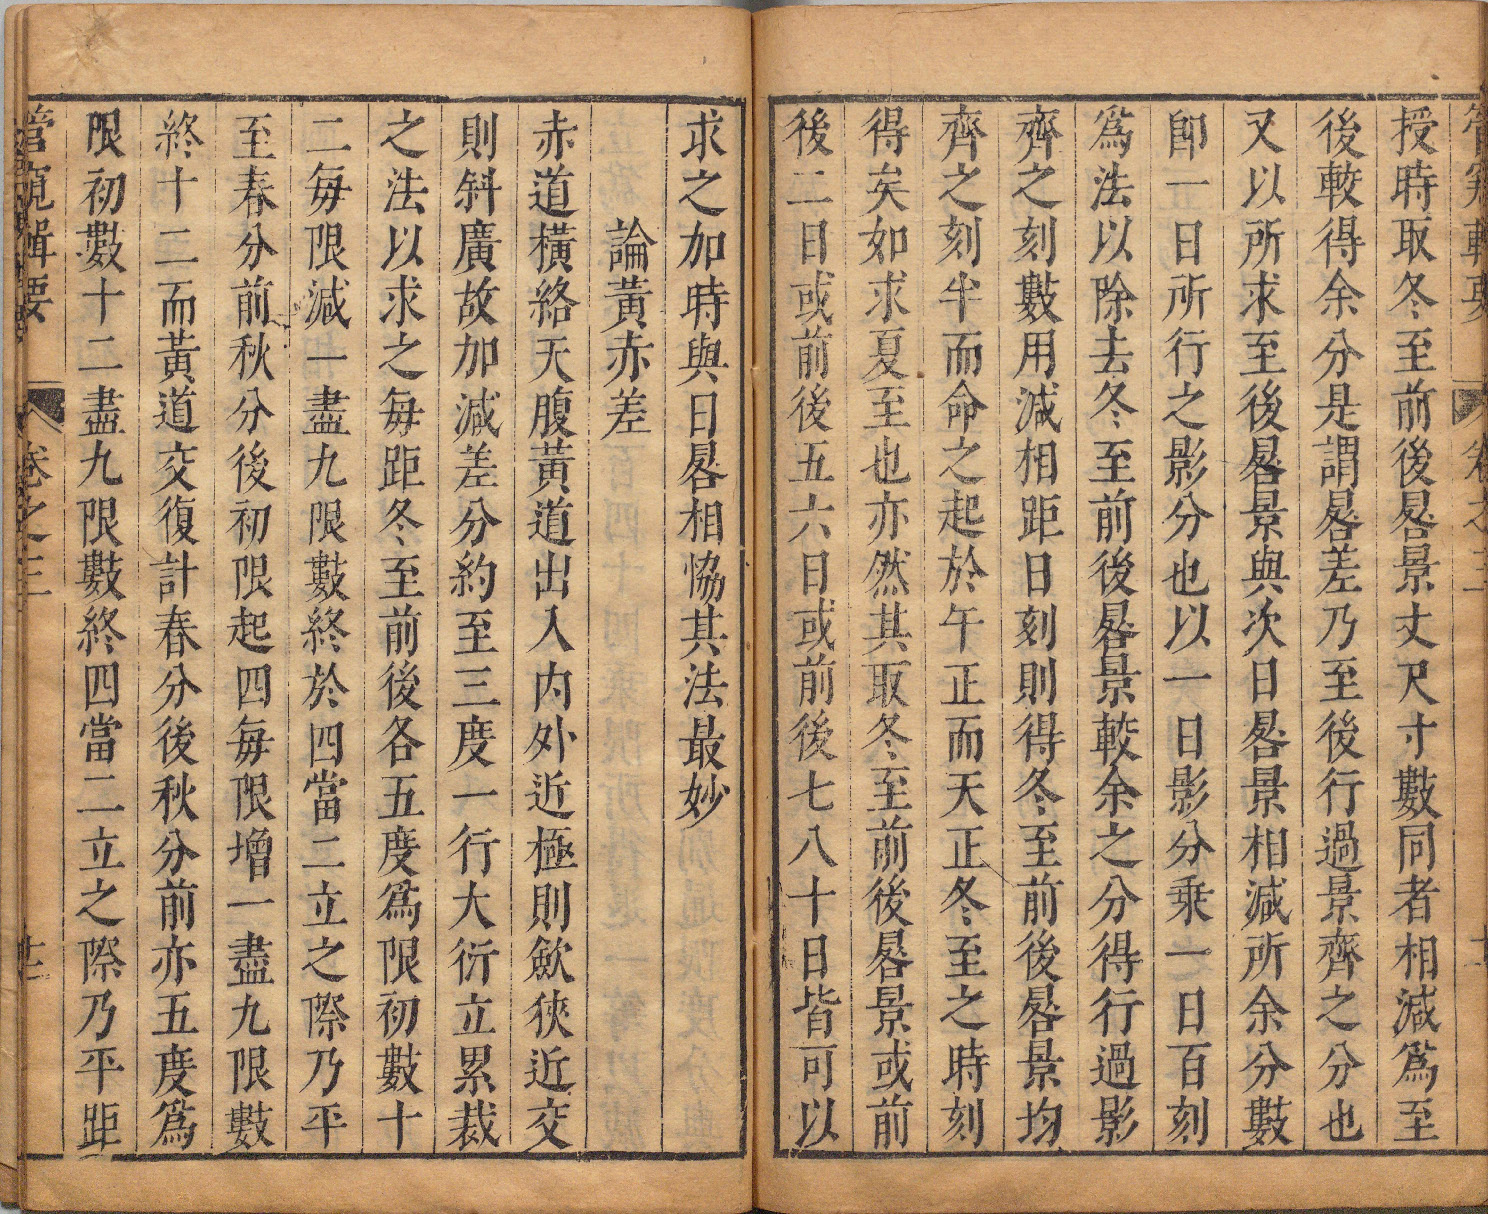 管窺輯要
卷之三
授時取冬至前後晷景丈尺寸數同者相減爲至
後較得余分是謂晷差乃至後行過景齊之分也
又以所求至後晷景與次日晷景相減所余分數
即一日所行之影分也以一日影分乘一日百刻
爲法以除去冬至前後晷景較余之分得行過影
齊之刻數用減相距日刻則得冬至前後晷景均
齊之刻半而命之起於午正而天正冬至之時刻
得矣如求夏至也亦然其取冬至前後晷景或前
後二日或前後五六日或前後七八十日皆可以
求之加時與日晷相恊其法最妙
論黃赤差
赤道橫絡天腹黃道出入内外近極則歛狹近交
則斜廣故加減差分約至三度一行大衍立累裁
之法以求之每距冬至前後各五度爲限初數十
二每限減一盡九限數終於四當二立之際乃平
至春分前秋分後初限起四每限增一盡九限數
終十二而黃道交復計春分後秋分前亦五度爲
限初數十二盡九限數終四當二立之際乃平距
管窺輯要
卷之三